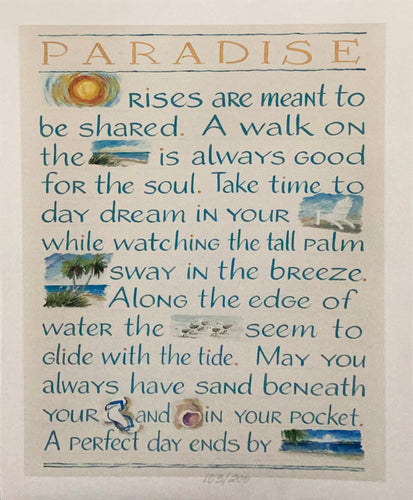 PARADISE
RISES ARE MEANT to
be SHARED. A WALK ON
the is ALWAYS GOOD
FOR the SOUL. Take time to
day dream in your
while watching the tall palm
SWAY IN the BREEZE.
ALONG the edge of
WATER the seem to
Glide with the tide. May you
always have sand beneath
YOUR and in your pocket.
A perfect day ends by
103/200